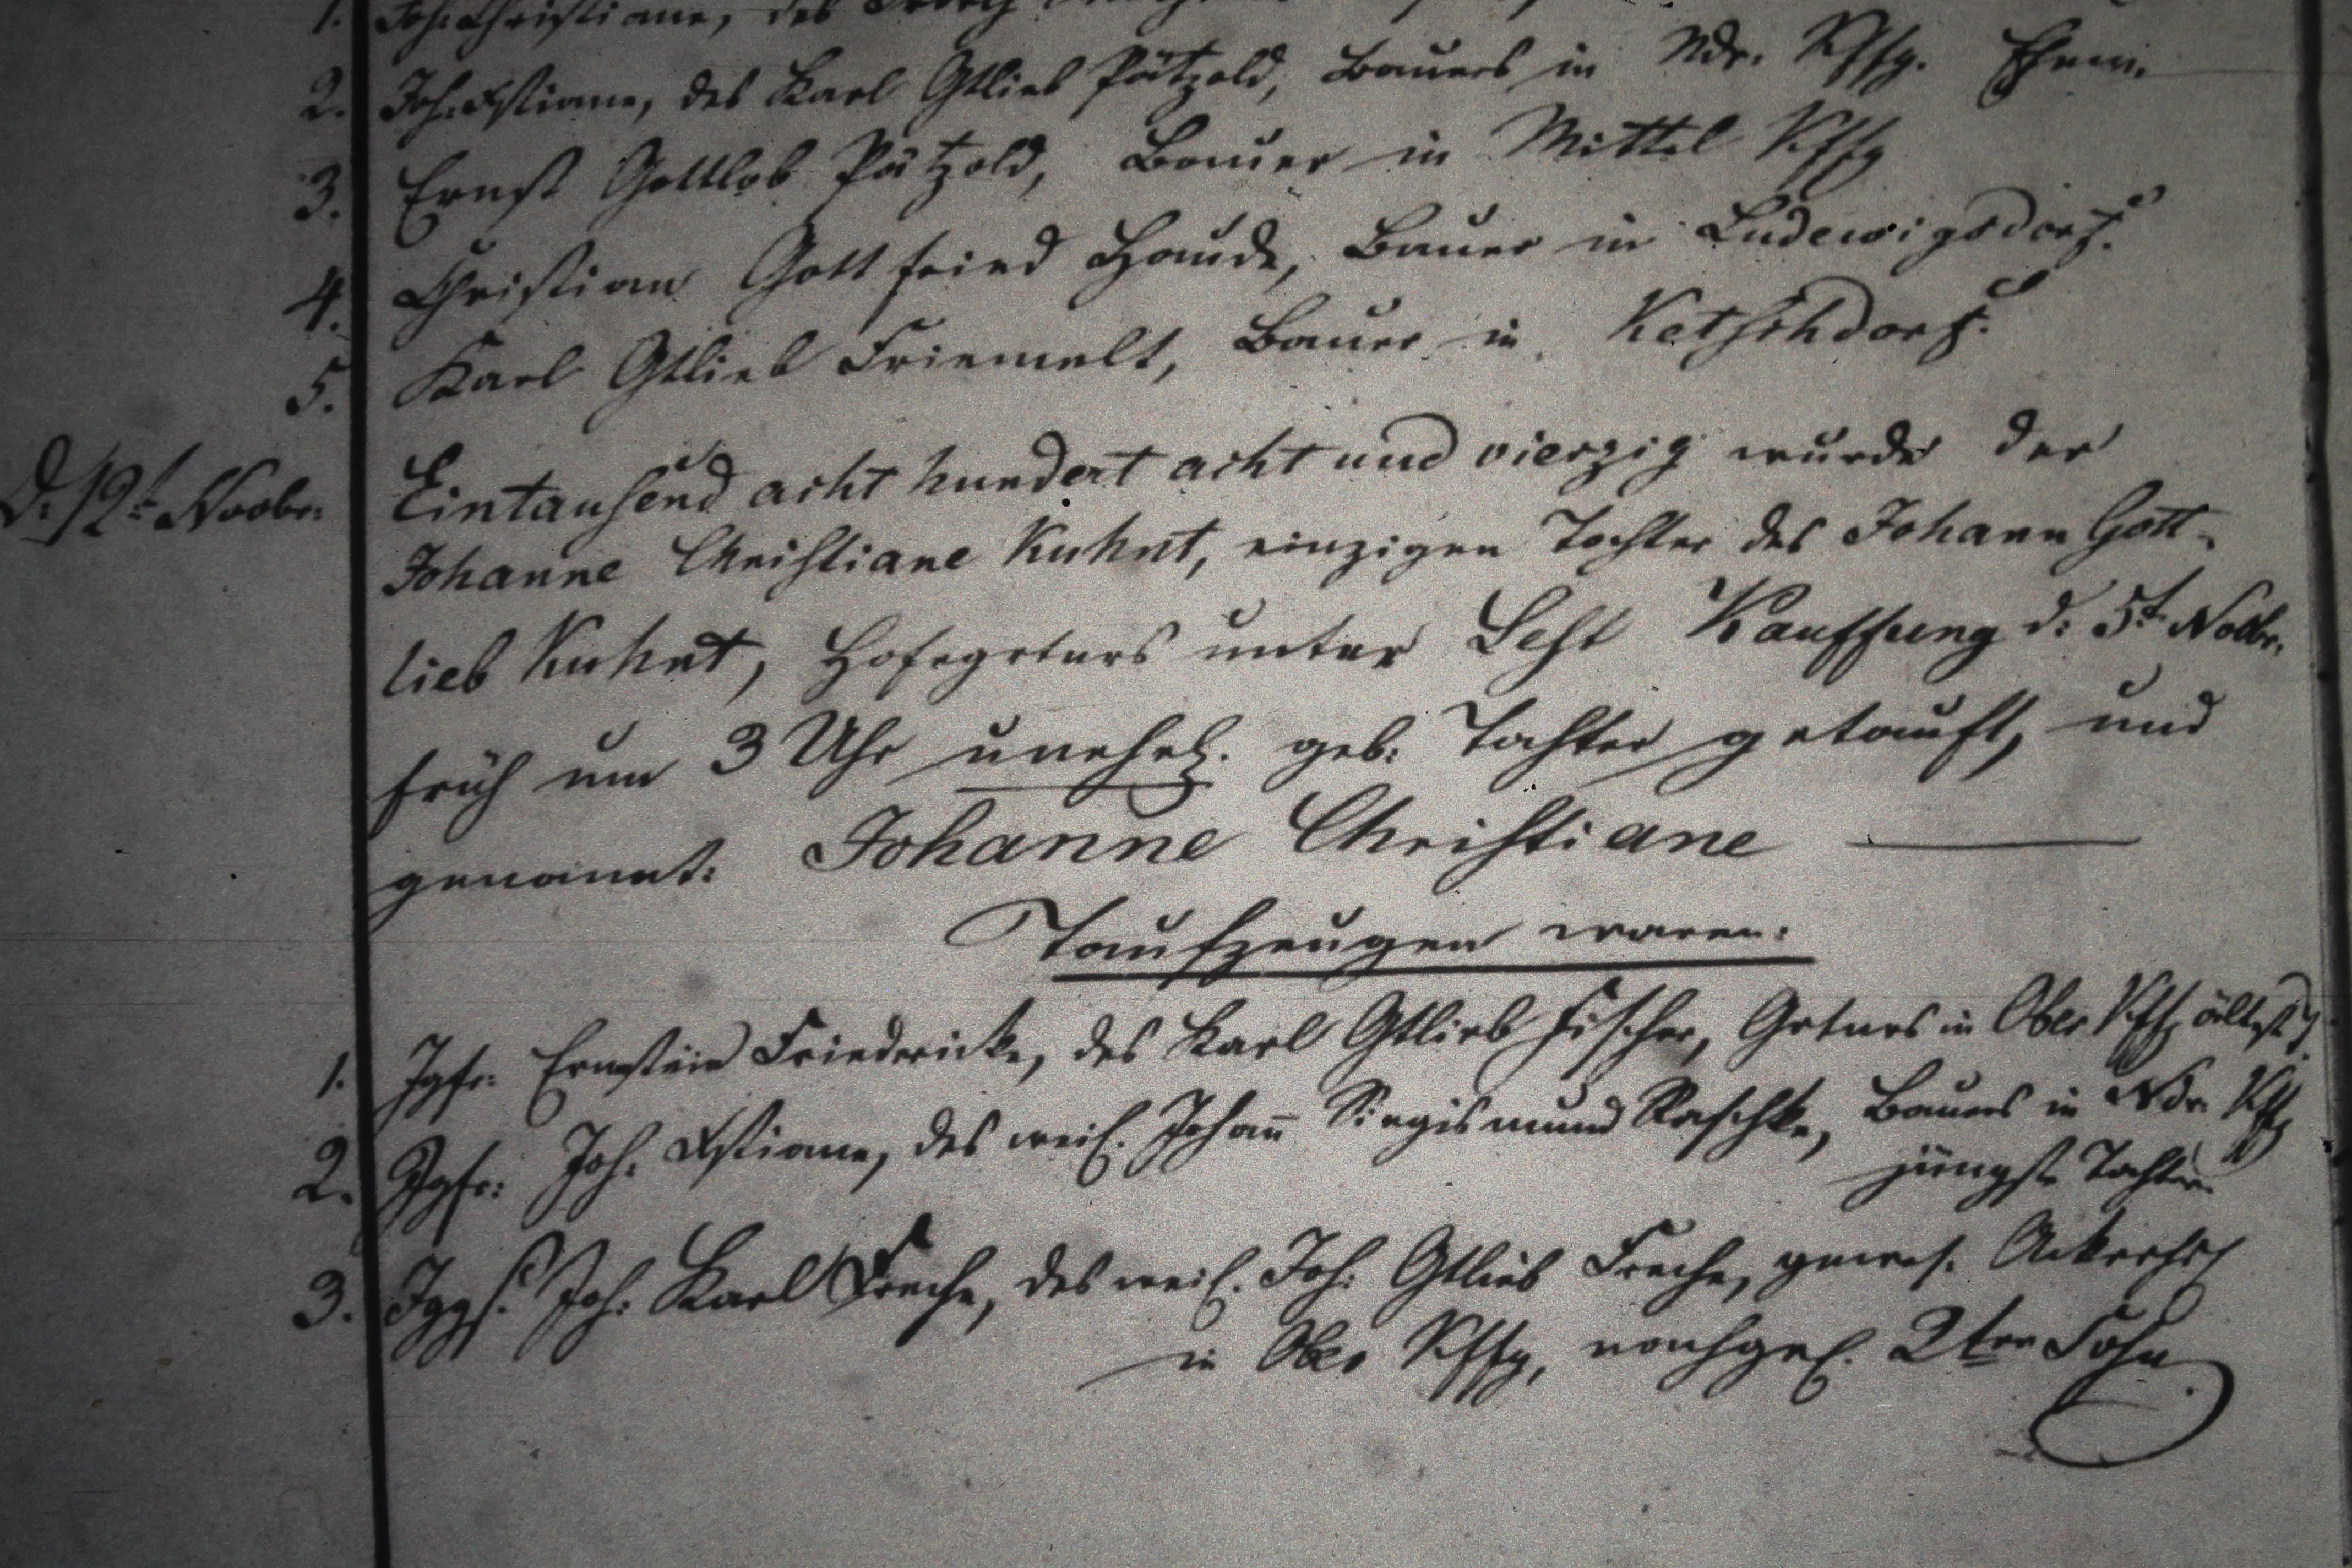 1. Joh: Christiane, des
2. Joh: Xstiane, des Karl Gtlieb Pätzold, Bauers in Ndr. Kffg. Ehew.
3. Ernst Gottlob Pätzold, Bauer in Mittel Kffg
4. Christian Gottfried Haude, Bauer in Ludewigsdorf.
5. Karl Gtlieb Friemelt, Bauer in Ketschdorf.
d. 12t Novbr. Eintausend acht hundert acht und vierzig wurde der
Johanne Christiane Kuhnt, einzigen Tochter des Johann Gott-
lieb Kuhnt, Hofegrtnrs unter Lest Kauffung d: 5t Novbr.
früh um 3 Uhr unehel. geb: Tochter getauft, und
genannt: Johanne Christiane
Taufzeugen waren:
1. Jgfr: Ernstine Friedericke, des Karl Gtlieb Fischer, Grtnrs in Ober Kffg älteste T.
2. Jgfr: Joh. Xstiane, des weil. Johann Siegismund Raschke, Bauers in Ndr. Kffg
jüngste Tochter
3. Jggs. Joh: Karl Freche, des weil. Joh: Gtlieb Freche, gewes.
in Ober Kffg, nachgel. 2ter Sohn